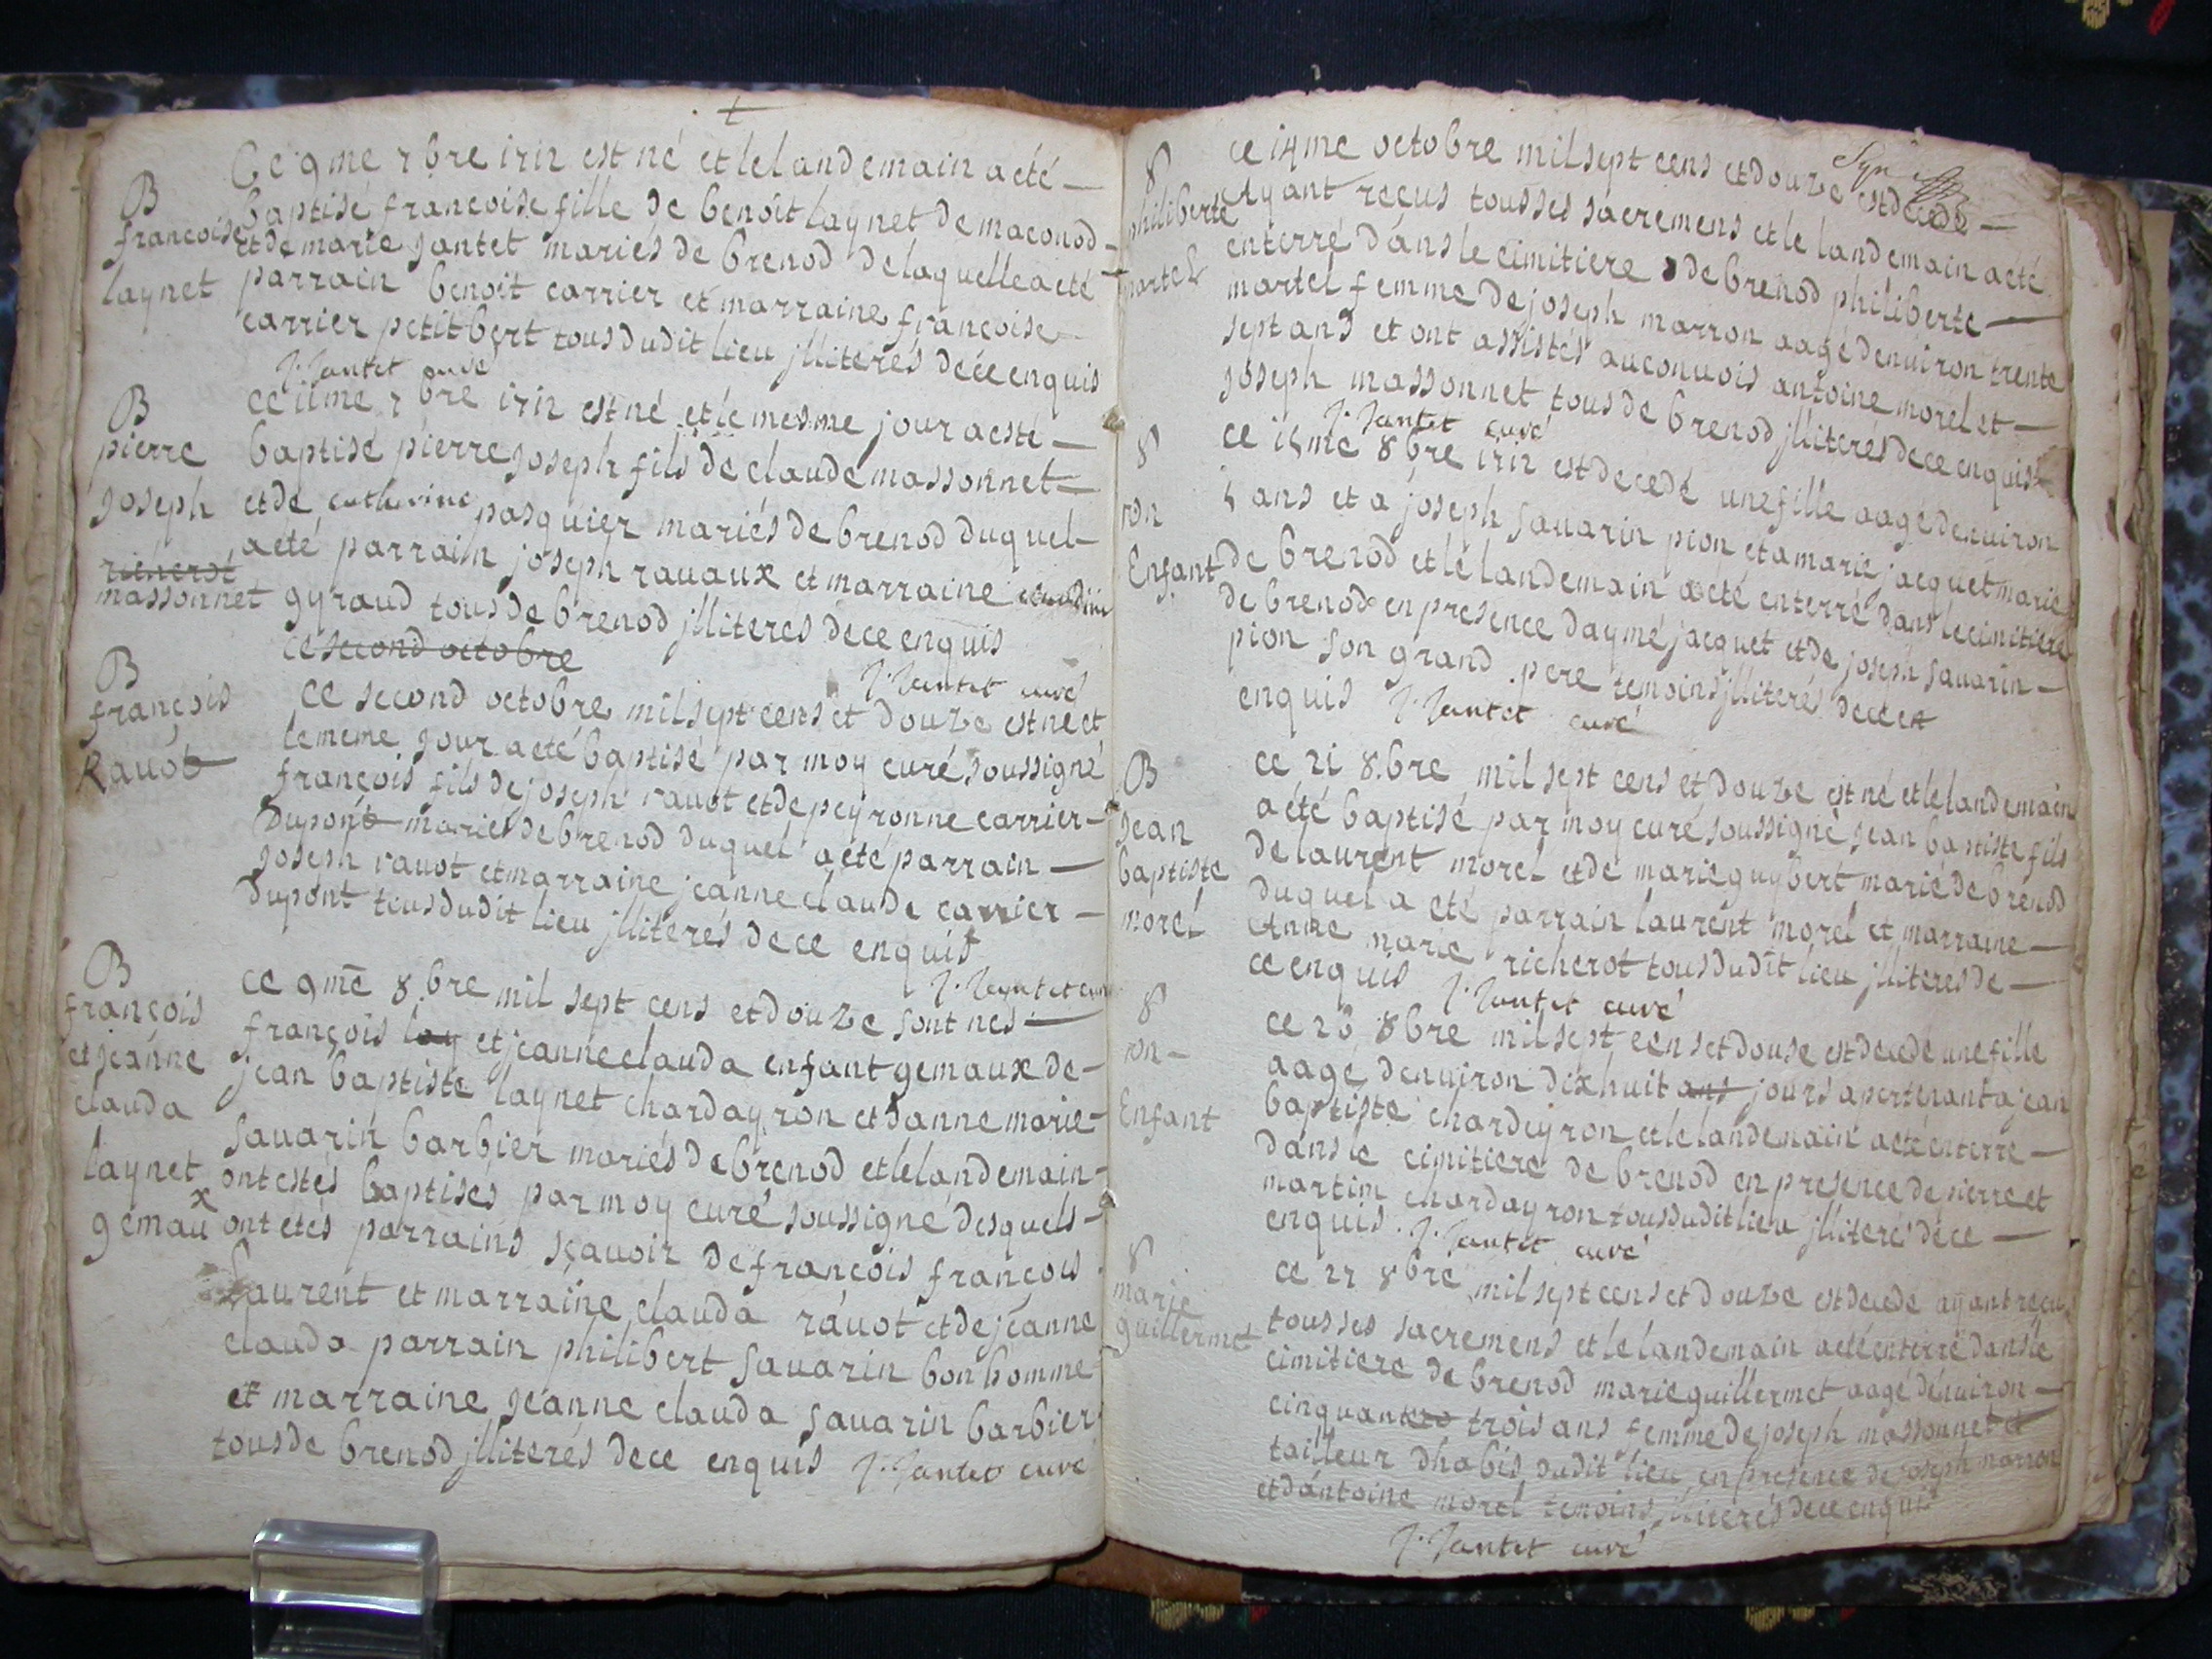 Ce 9me 7bre 1712 est né et le landemain a été —
B
françoise
laynet
baptisé françoise fille de benoit laynet de maconod —
et de marie jantet mariés de brenod de laquelle a eté —
parrain benoit carrier et marraine françoise —
carrier petitbert tous dudit lieu jlliterés de ce enquis
J. Jantet curé
B
pierre
joseph
massonnet
ce 11me 7bre 1712 est né et le mesme jour a esté —
baptisé pierre joseph fils de claude massonnet —
et de catherine pasquier mariés de brenod duquel
a eté parrain joseph rauaux et marraine claudine
gyraud tous de brenod jlliteres de ce enquis
ce second octobre
J. Jantet curé
B
françois
Rauot
ce second octobre mil sept cens et douze est né et
le meme jour a eté baptisé par moy curé soussigné
françois fils de joseph rauot et de peyronne carrier —
dupont mariés de brenod duquel a eté parrain —
joseph rauot et marraine jeanne claude carrier —
dupont tous dudit lieu jlliterés de ce enquis
J. Jantet curé
B
françois
et jeanne
clauda
laynet
gemaux
ce 9me 8.bre mil sept cens et douze sont nes —
françois lay et jeanne clauda enfant gemaux de —
jean baptiste laynet chardayron et danne marie —
sauarin barbier mariés de brenod et le landemain —
ont estés baptisés par moy curé soussigné desquels —
ont etés parrains sçauoir de françois françois
Laurent et marraine clauda rauot et de jeanne
clauda parrain philibert sauarin bonhomme
et marraine jeanne clauda sauarin barbier
tous de brenod jlliterés de ce enquis J. Jantet curé
8
philiberte
martel
ce 14me octobre mil sept cens et douze est decedé —
Ayant reçus tous ses sacremens et le landemain a eté
enterré dans le cimitiere de brenod philiberte —
martel femme de joseph marron aagé denuiron trente
sept ans et ont assistés au conuois antoine morel et —
joseph massonnet tous de brenod jlliterés de ce enquis
J. Jantet curé
8
ron
Enfant
ce 15me 8bre 1712 est decedé une fille aagé denuiron
5 ans et a joseph sauarin pion et a marie jacquet mariés
de brenod et le landemain a eté enterré dans le cimitiere
de brenod en presence daymé jacquet et de joseph sauarin —
pion son grand pere temoins jlliterés de ce en
enquis J. Jantet curé
B
jean
baptiste
morel
ce 21 8.bre mil sept cens et douze est né et le landemain
a été baptisé par moy curé soussigné jean baptiste fils
de laurent morel et de marie guybert marié de brenod
duquel a eté parrain laurent morel et marraine —
Anne marie richerot tous dudit lieu jlliteres de —
ce enquis J. Jantet curé
8
ron —
Enfant
ce 26 8bre mil sept cens et douse est decedé une fille
aagé denuiron dixhuit ans jours apertenant a jean
baptiste chardeyron et le landemain a eté enterré —
dans le cimitiere de brenod en presence de pierre et
martim chardayron tous dudit lieu jlliteré de ce —
enquis. J. Jantet curé
8
marie
guillermet
ce 27 8bre mil sept cens et douze est decede ayant reçu
tous ses sacremens et le landemain a eté enterré dans le
cimitiere de brenod marie guillermet aagé dénuiron —
cinquante trois ans femme de joseph massonnet et
tailleur dhabis dudit lieu en presence de joseph marron
et dantoine morel temoins jlliterés de ce enquis
J. Jantet curé